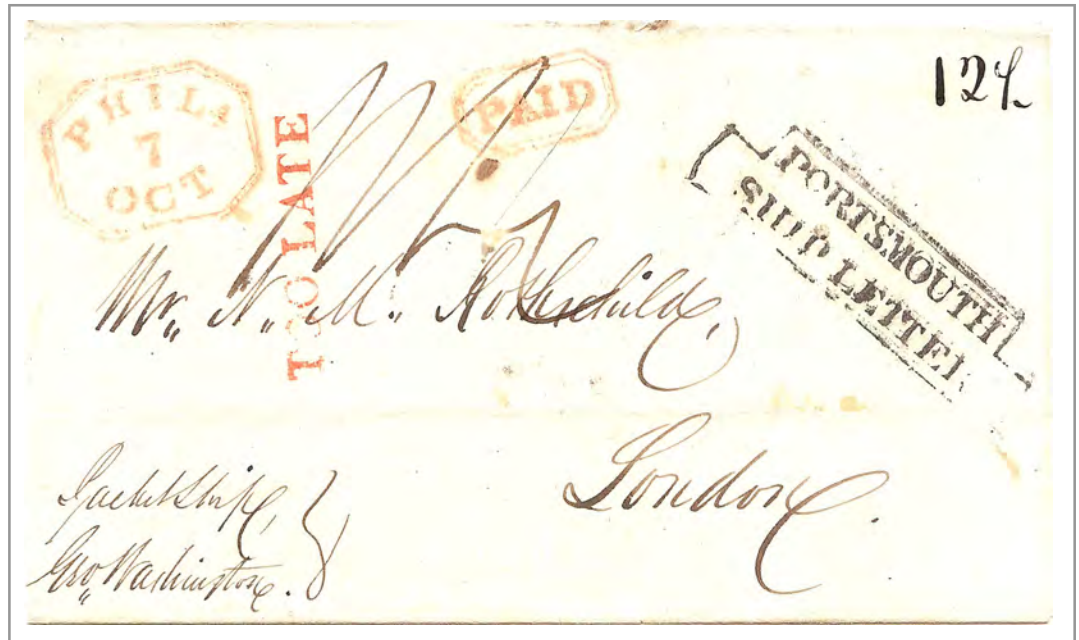 PHILA
7
OCT
PAID
TOO LATE
12½
PORTSMOUTH
SHIP LETTER
Mr. N. M. Rothschild,
London.
Packet Ship,
Geo. Washington.